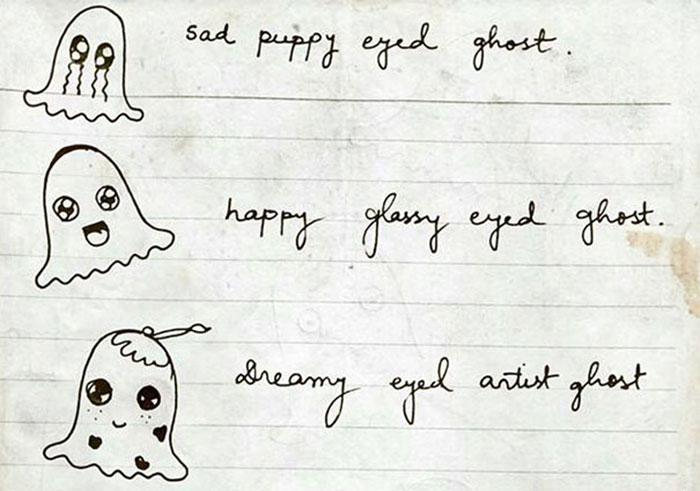 sad puppy eyed ghost.
happy glassy eyed ghost.
Dreamy eyed artist ghost